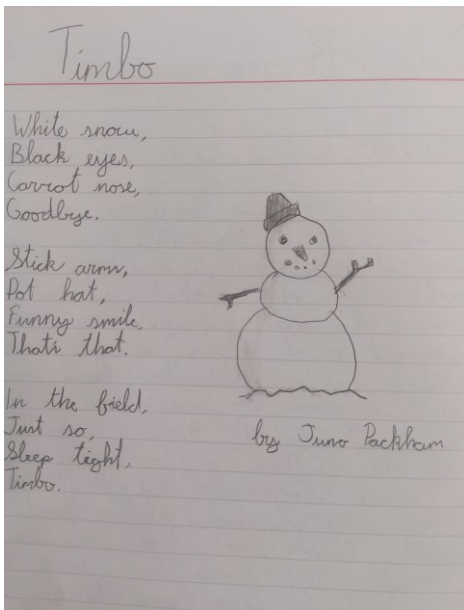 Timbo
White snow,
Black eyes,
Carrot nose,
Goodbye.
Stick arms,
Pot hat,
Funny smile,
That's that.
In the field,
Just so,
Sleep tight,
Timbo.
by Juno Packham